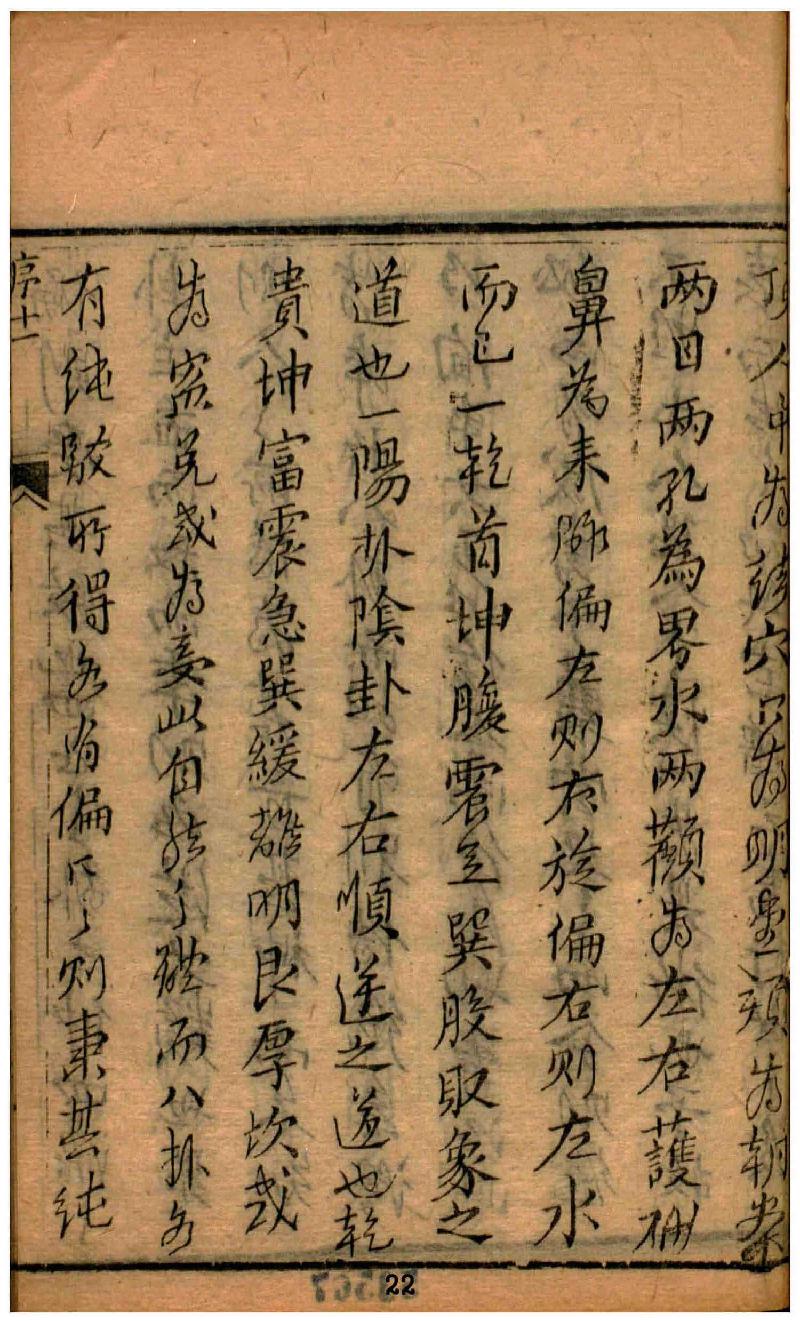 頂人中為結穴口為明堂頦為朝案
两目两孔為界水两顴為左右護砂
鼻為来脉偏左则右旋偏右则左水
而已一乾首坤腹震足巽股取象之
道也一陽卦陰卦左右順逆之道也乾
貴坤富震急巽緩離明艮厚坎或
為盗兑或為妾此自然之體而八卦各
有純駁所得各有偏则秉其純
序十一
22